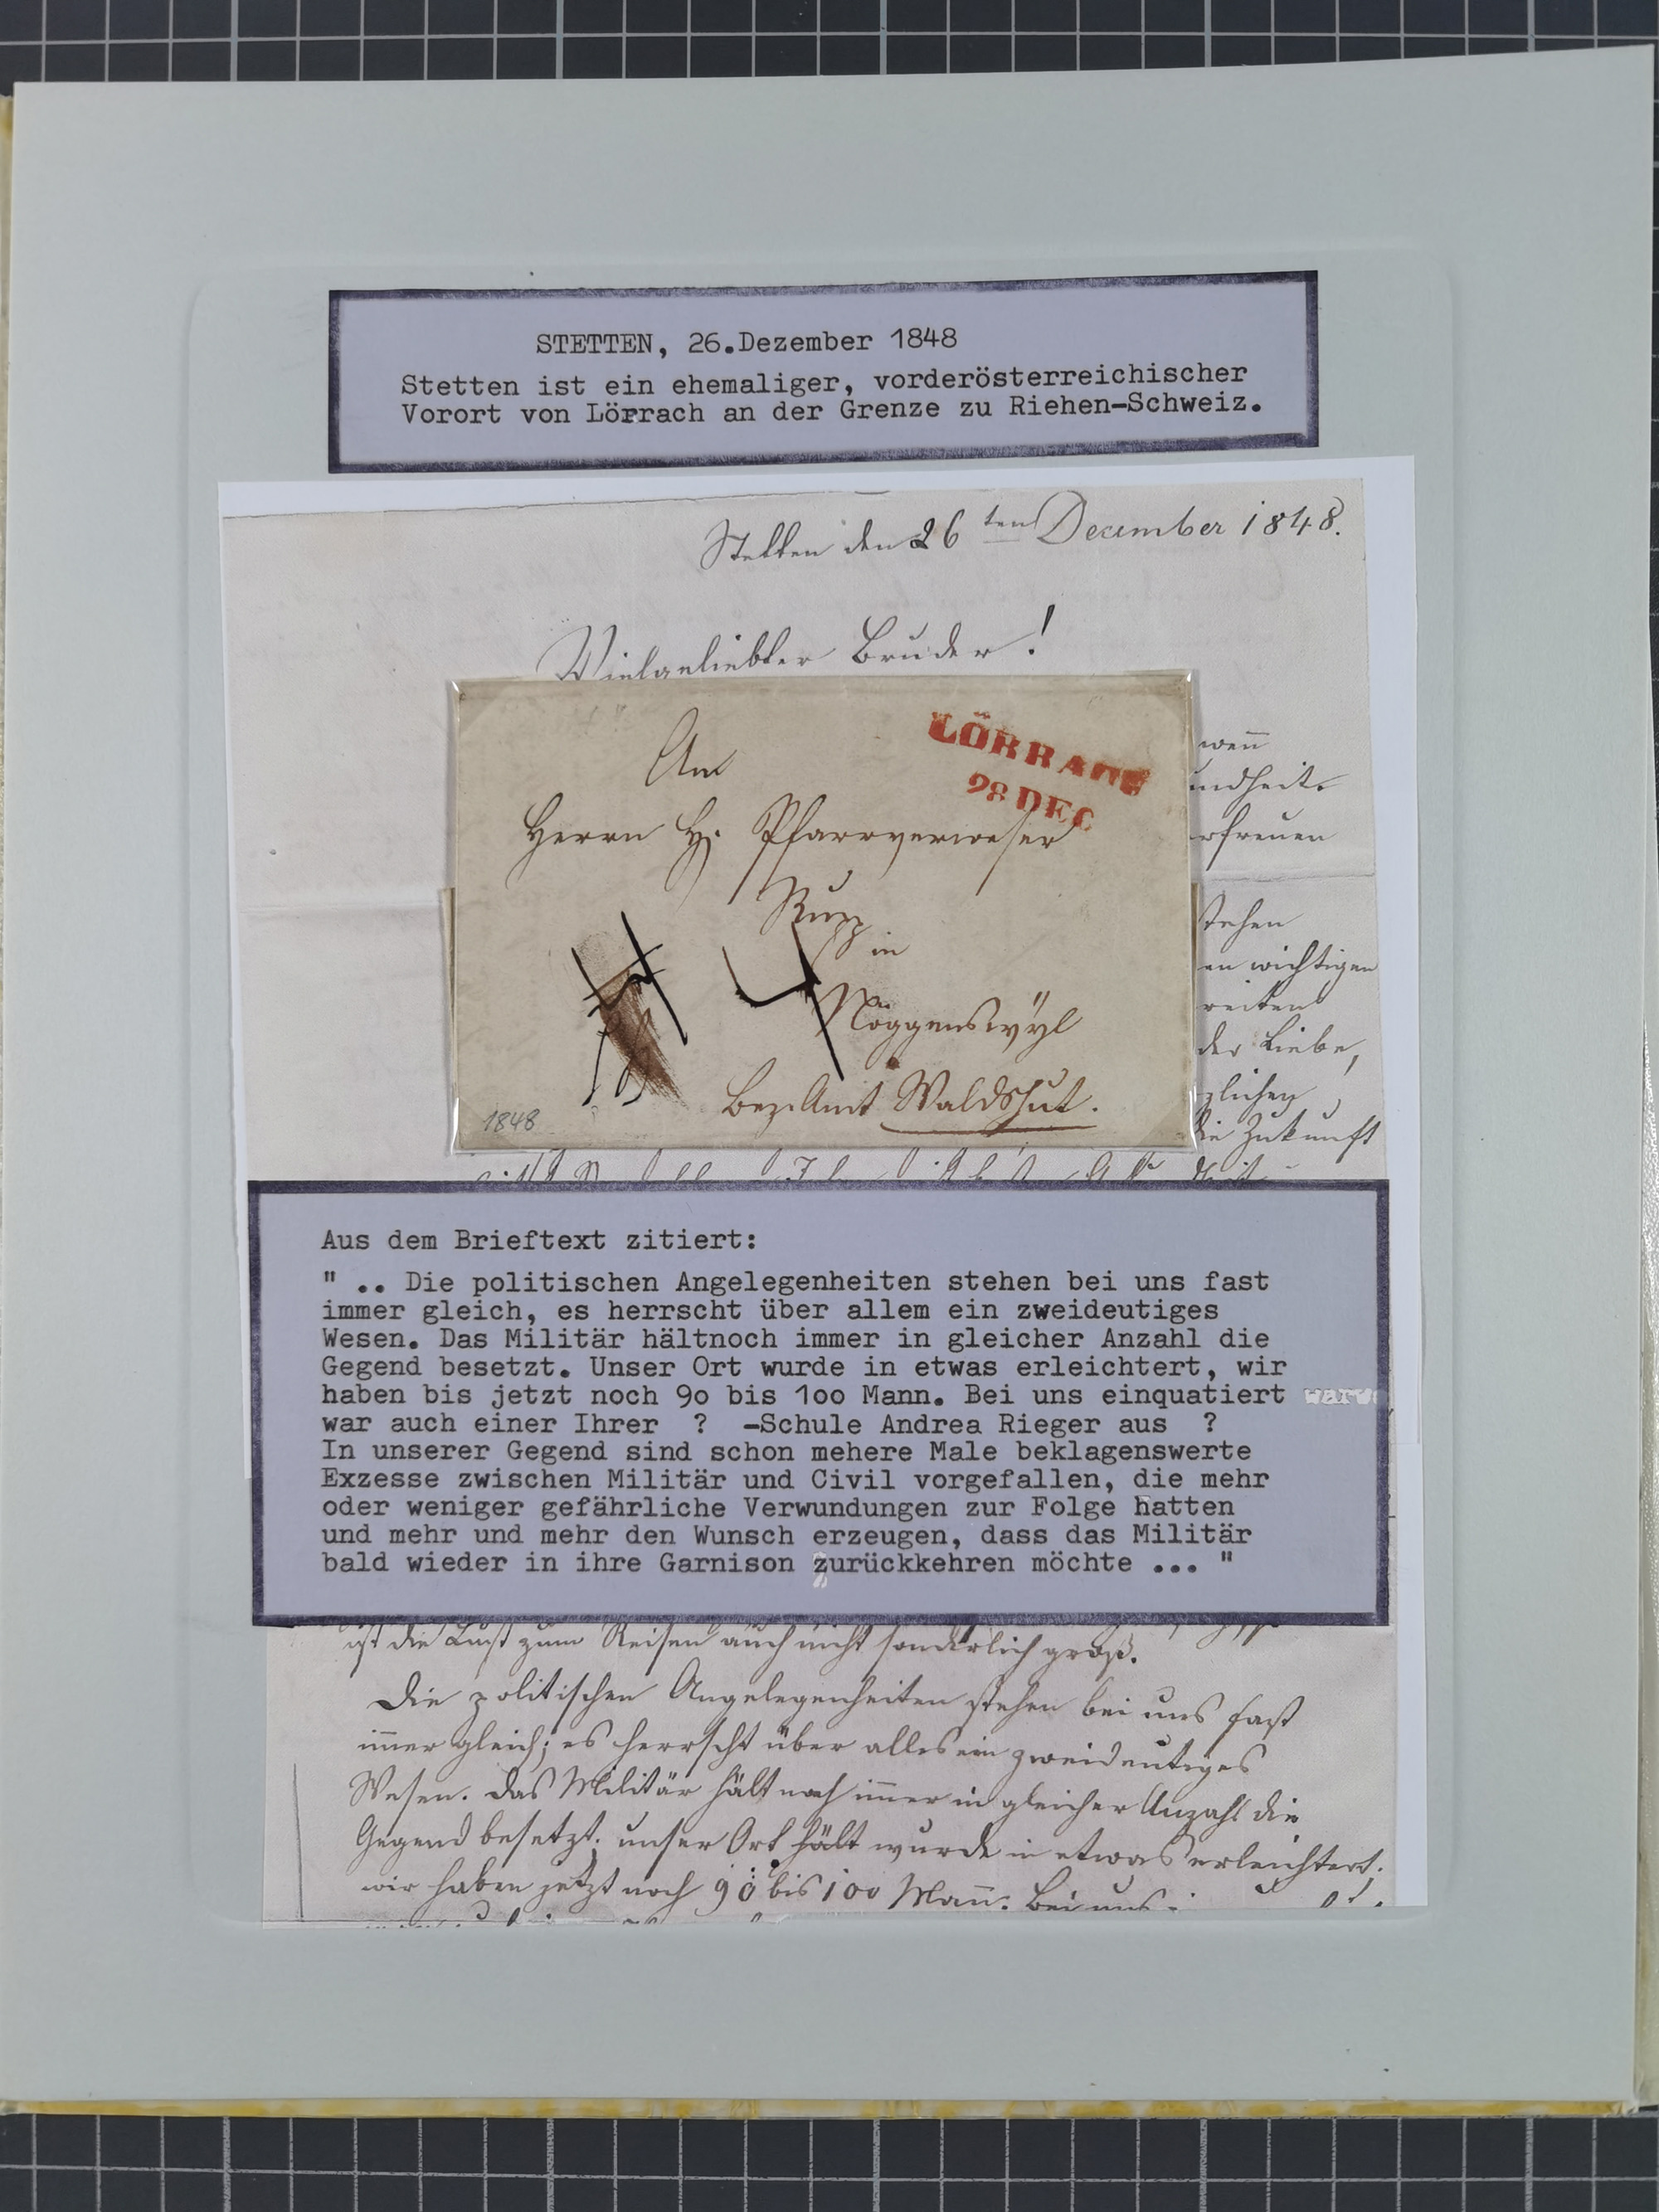 STETTEN, 26.Dezember 1848
Stetten ist ein ehemaliger, vorderösterreichischer
Vorort von Lörrach an der Grenze zu Riehen-Schweiz.
Stetten den 26ten December 1848.
Vielgeliebter Bruder!
LÖRRACH
28 DEC
An
Herrn H. Pfarrverweser
Rupp
in
Nöggenswÿl
Bez. Amt Waldshut.
4
1848
wen̄
undheit
rfreuen
stehen
en wichtigen
reiten
der Liebe,
zlichen
die Zukunft
Aus dem Brieftext zitiert:
" .. Die politischen Angelegenheiten stehen bei uns fast
immer gleich, es herrscht über allem ein zweideutiges
Wesen. Das Militär hältnoch immer in gleicher Anzahl die
Gegend besetzt. Unser Ort wurde in etwas erleichtert, wir
haben bis jetzt noch 9o bis 1oo Mann. Bei uns einquatiert
war auch einer Ihrer ? -Schule Andrea Rieger aus ?
In unserer Gegend sind schon mehere Male beklagenswerte
Exzesse zwischen Militär und Civil vorgefallen, die mehr
oder weniger gefährliche Verwundungen zur Folge hatten
und mehr und mehr den Wunsch erzeugen, dass das Militär
bald wieder in ihre Garnison zurückkehren möchte ... "
ist die Lust zum Reisen auch nicht sonderlich groß.
Die politischen Angelegenheiten stehen bei uns fast
im̄er gleich; es herrscht über alles ein zweideutiges
Wesen. Das Militär hält noch im̄er in gleicher Anzahl die
Gegend besetzt; unser Ort hält wurde in etwas erleichtert;
wir haben jetzt noch 90 bis 100 Man̄. Bei uns